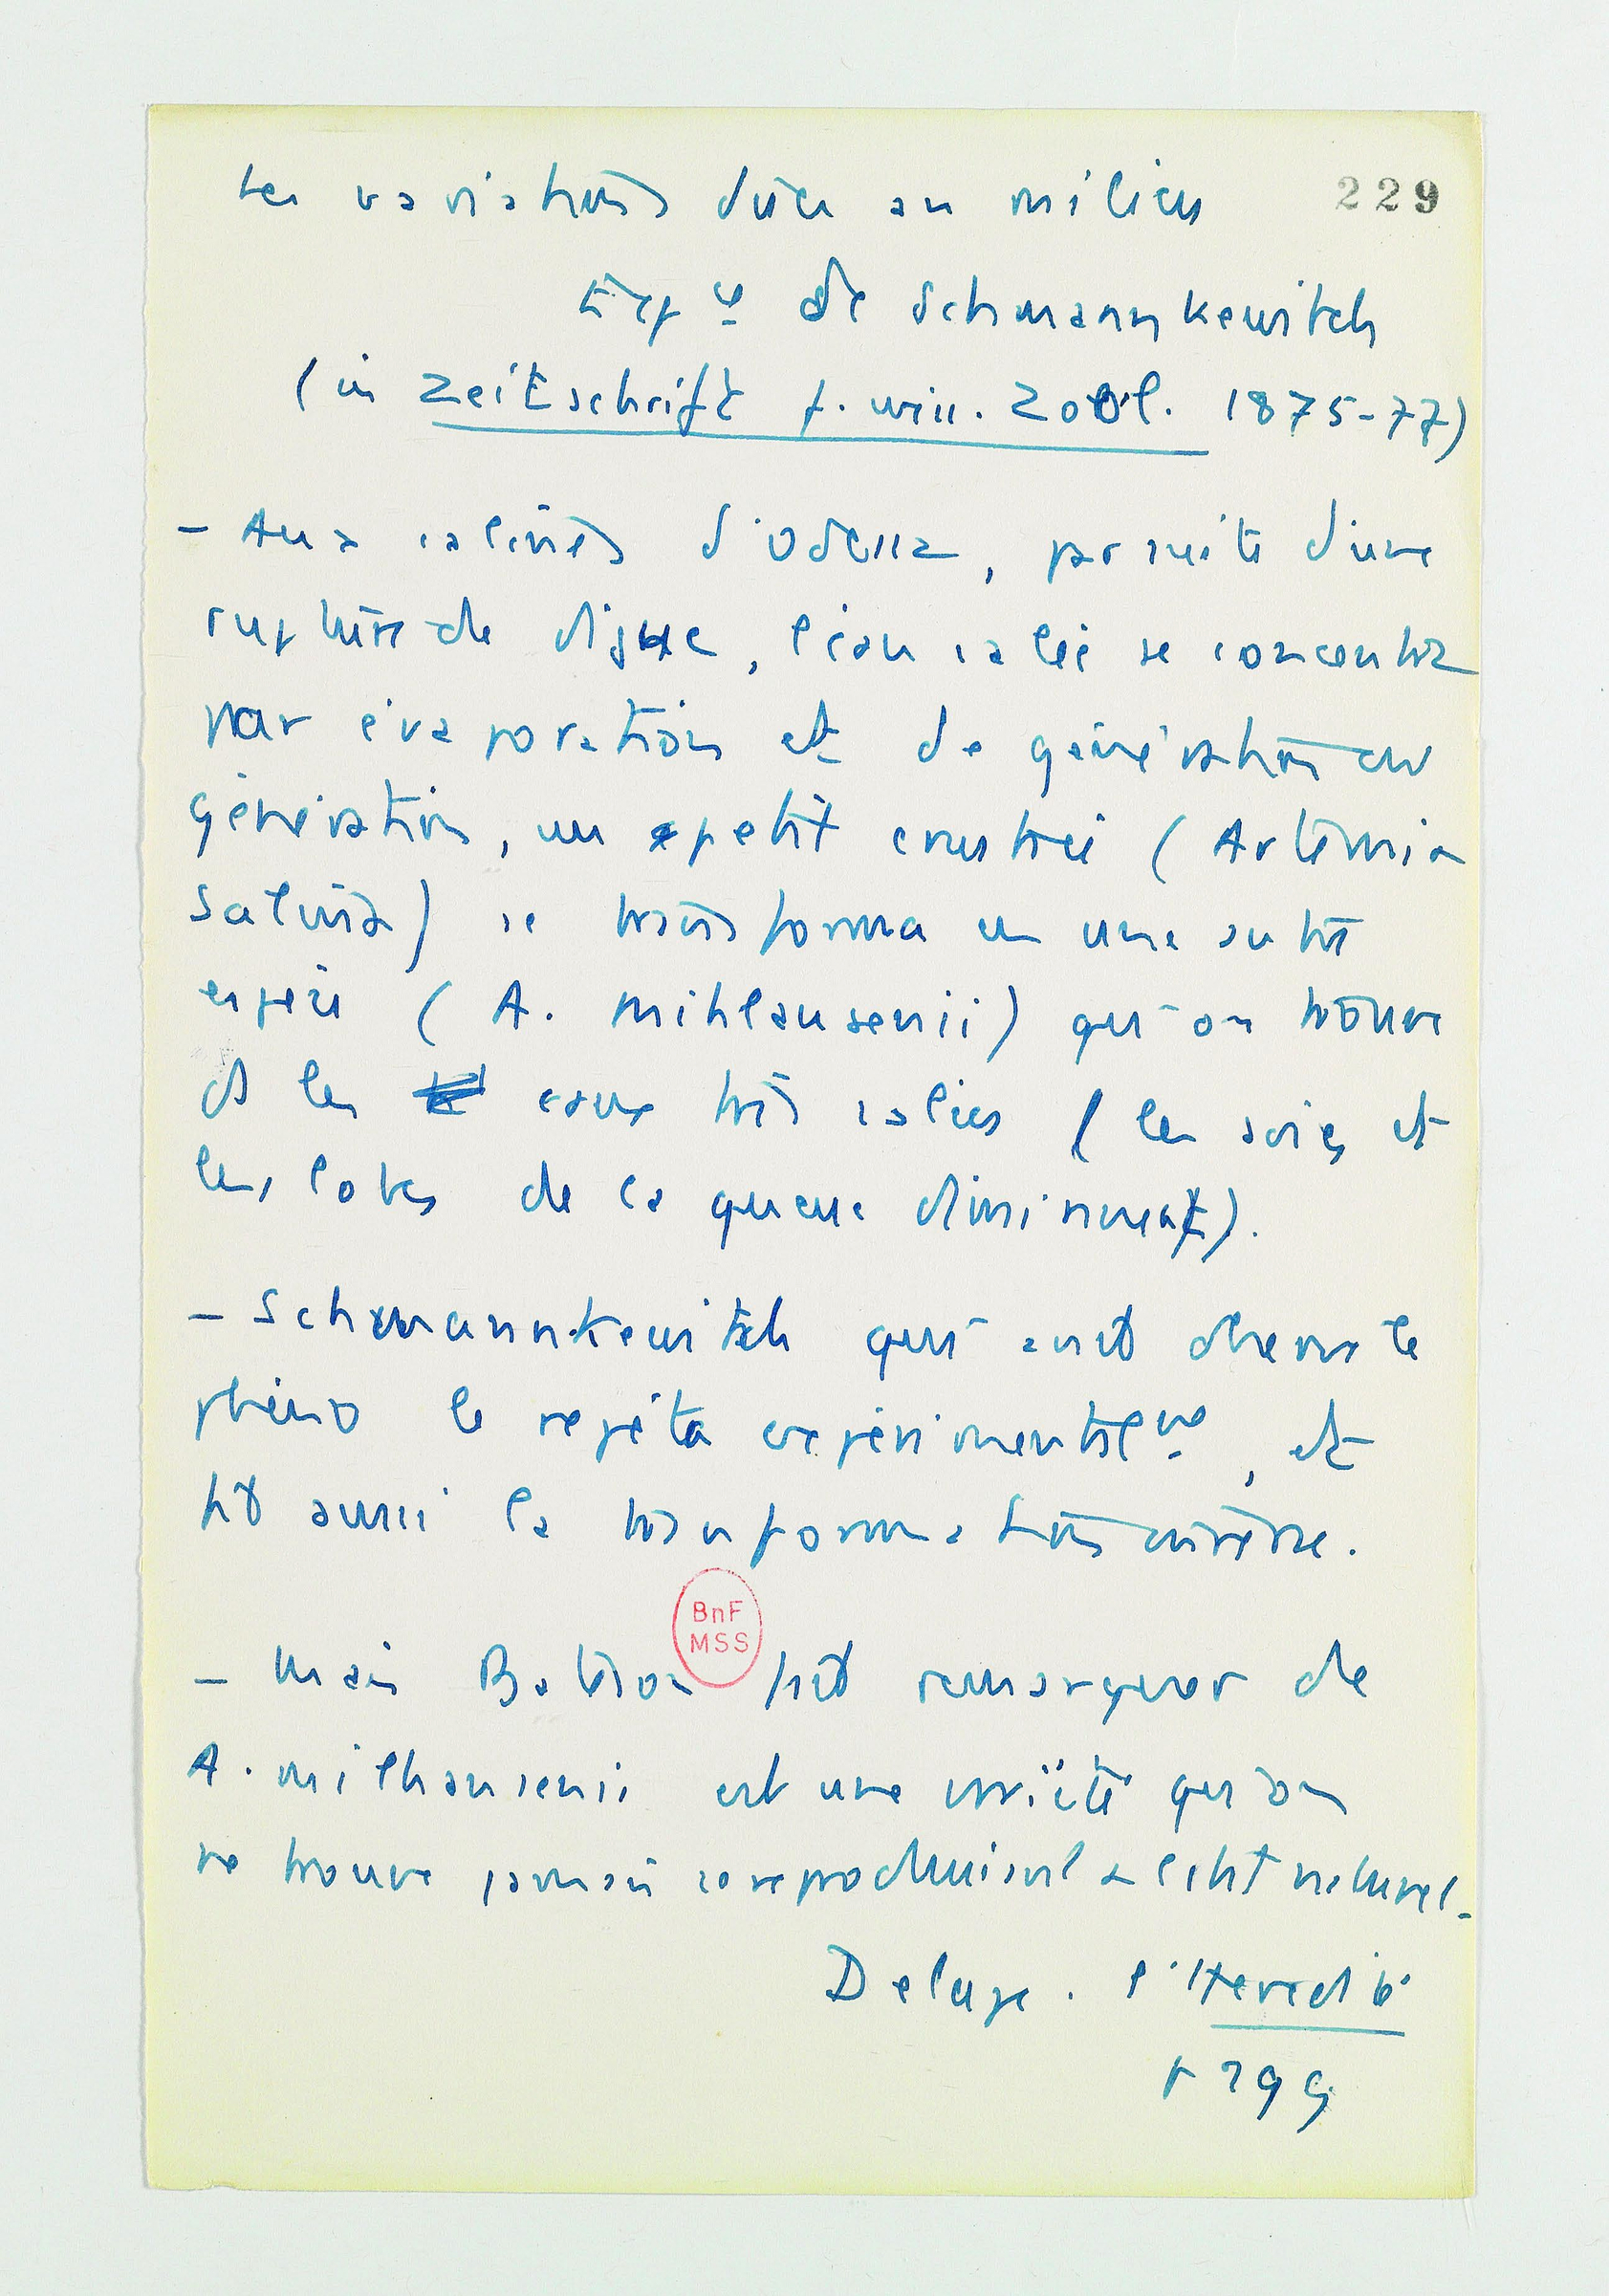 Les variations dues au milieu
229
Expce de Schmannkewitch
(in Zeitschrift f. wiss. Zool. 1875-77)
- Aux salines d'Odessa, par suite d'une
rupture de digue, l'eau salée se concentra
par évaporation et de génération en
génération, un petit crustacé (Artemia
Salina) se transforma en une autre
espèce (A. mihlausenii) qu'on trouve
ds les eaux très salées (les soies et
les lobes de la queue diminuent).
- Schmannkewitch qui avait observé le
phéno le répéta expérimentalmt, et
fit aussi la transformation inverse.
BnF
MSS
- Mais Bateson fait remarquer que
A. milhausenii est une variété qu'on
ne trouve jamais se reproduisant à l'état naturel.
Delage. l'Hérédité
p 299